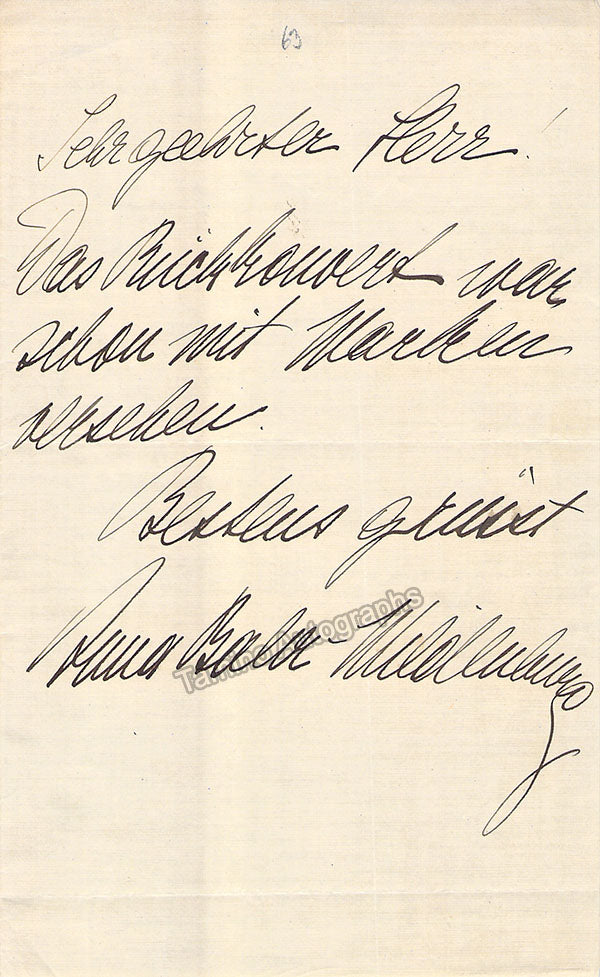 63
Sehr geehrter Herr!
Das Rückkouvert war
schon mit Marken
versehen.
Bestens grüsst
Anna Bahr-Mildenburg
Tamino Autographs